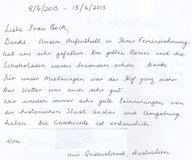 8/6/2013 - 13/6/2013
Liebe Frau Beck,
Danke. Unser Aufenthalt in Ihrer Ferienwohnung
hat uns sehr gefallen. Die gelben Rosen und die
Schokoladen waren besonders schön. Danke
Für unser Mietwagen war der Hof ganz sicher.
Das Wetter war auch sehr gut
Wir werden immer sehr gute Erinnerungen von
der historischen Stadt Goslar und Umgebung
haben. Die Geschichte ist erstaunlich
von
aus Queensland, Australien